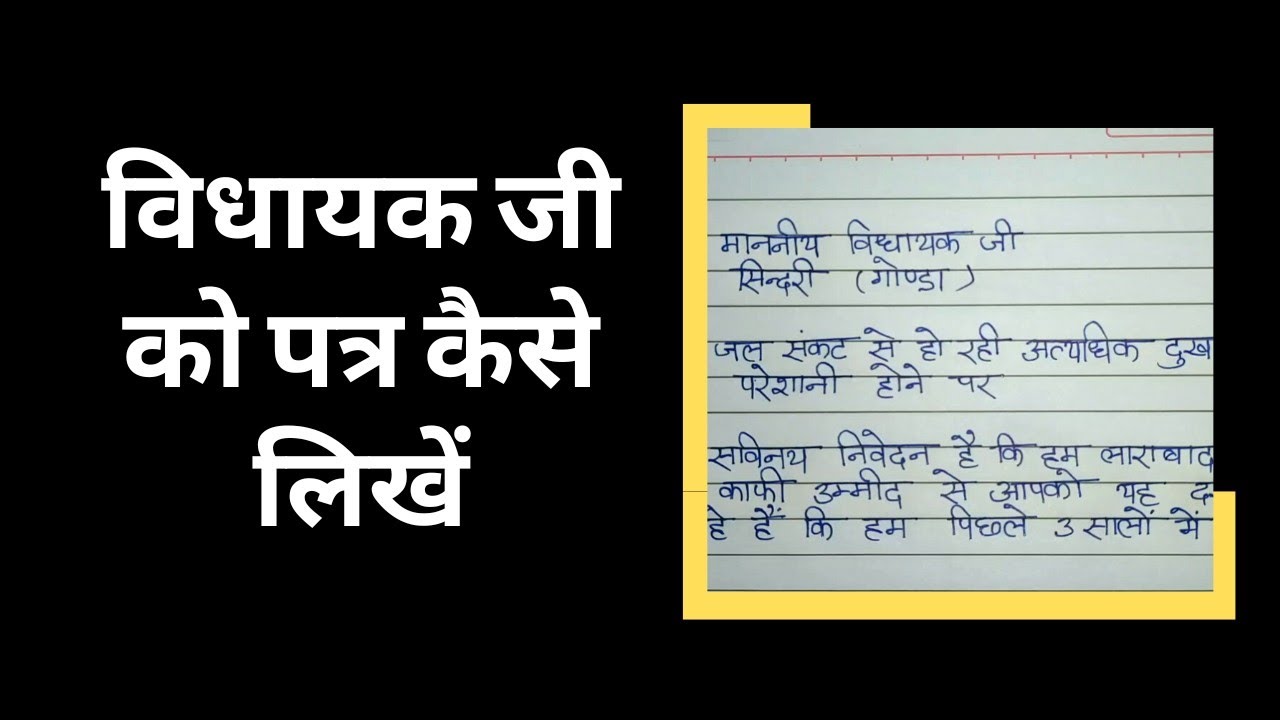 विधायक जी
को पत्र कैसे
लिखें
माननीय विधायक जी
सिन्दरी (गोण्डा)
जल संकट से हो रही अत्यधिक दुख
परेशानी होने पर
सविनय निवेदन है कि हम
काफी उम्मीद से आपको यह
हे हैं कि हम पिछले 3 सालों में